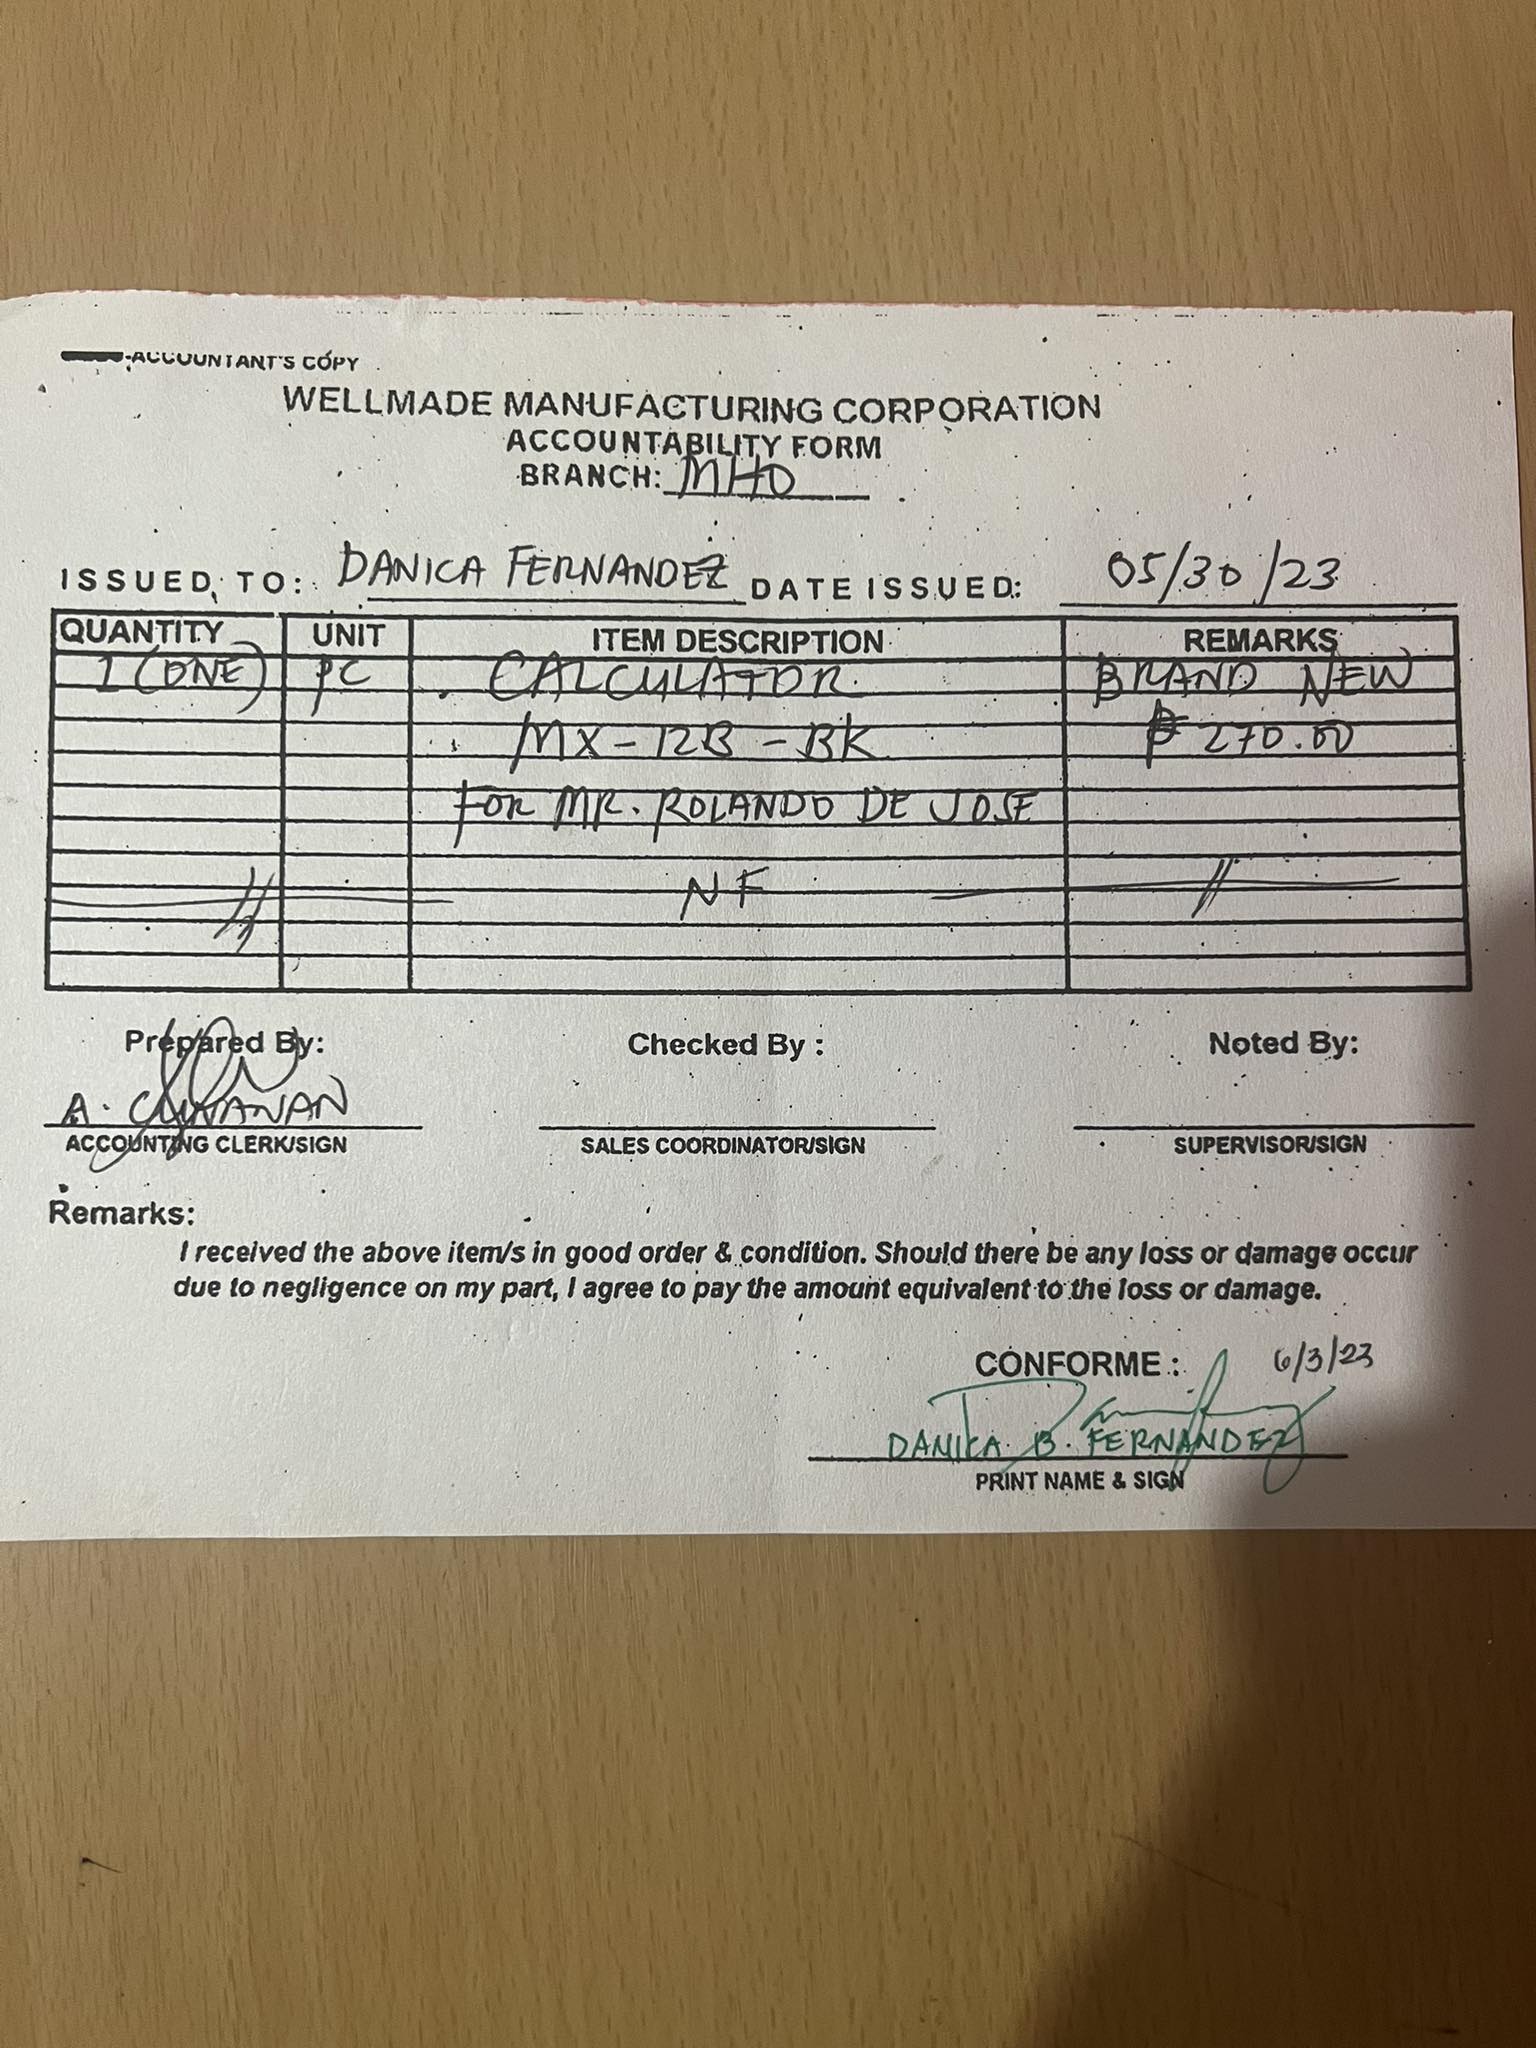 ACCOUNTANT'S COPY
WELLMADE MANUFACTURING CORPORATION
ACCOUNTABILITY FORM
BRANCH: MHO
ISSUED TO: DANICA FERNANDEZ DATE ISSUED: 05/30/23
QUANTITY UNIT ITEM DESCRIPTION REMARKS
1 (ONE) PC CALCULATOR BRAND NEW
MX-12B-BK ₱ 270.00
FOR MR. ROLANDO DE JOSE
NF
Prepared By: Checked By : Noted By:
A.
ACCOUNTING CLERK/SIGN SALES COORDINATOR/SIGN SUPERVISOR/SIGN
Remarks:
I received the above item/s in good order & condition. Should there be any loss or damage occur
due to negligence on my part, I agree to pay the amount equivalent to the loss or damage.
CONFORME : 6/3/23
DANICA B. FERNANDEZ
PRINT NAME & SIGN